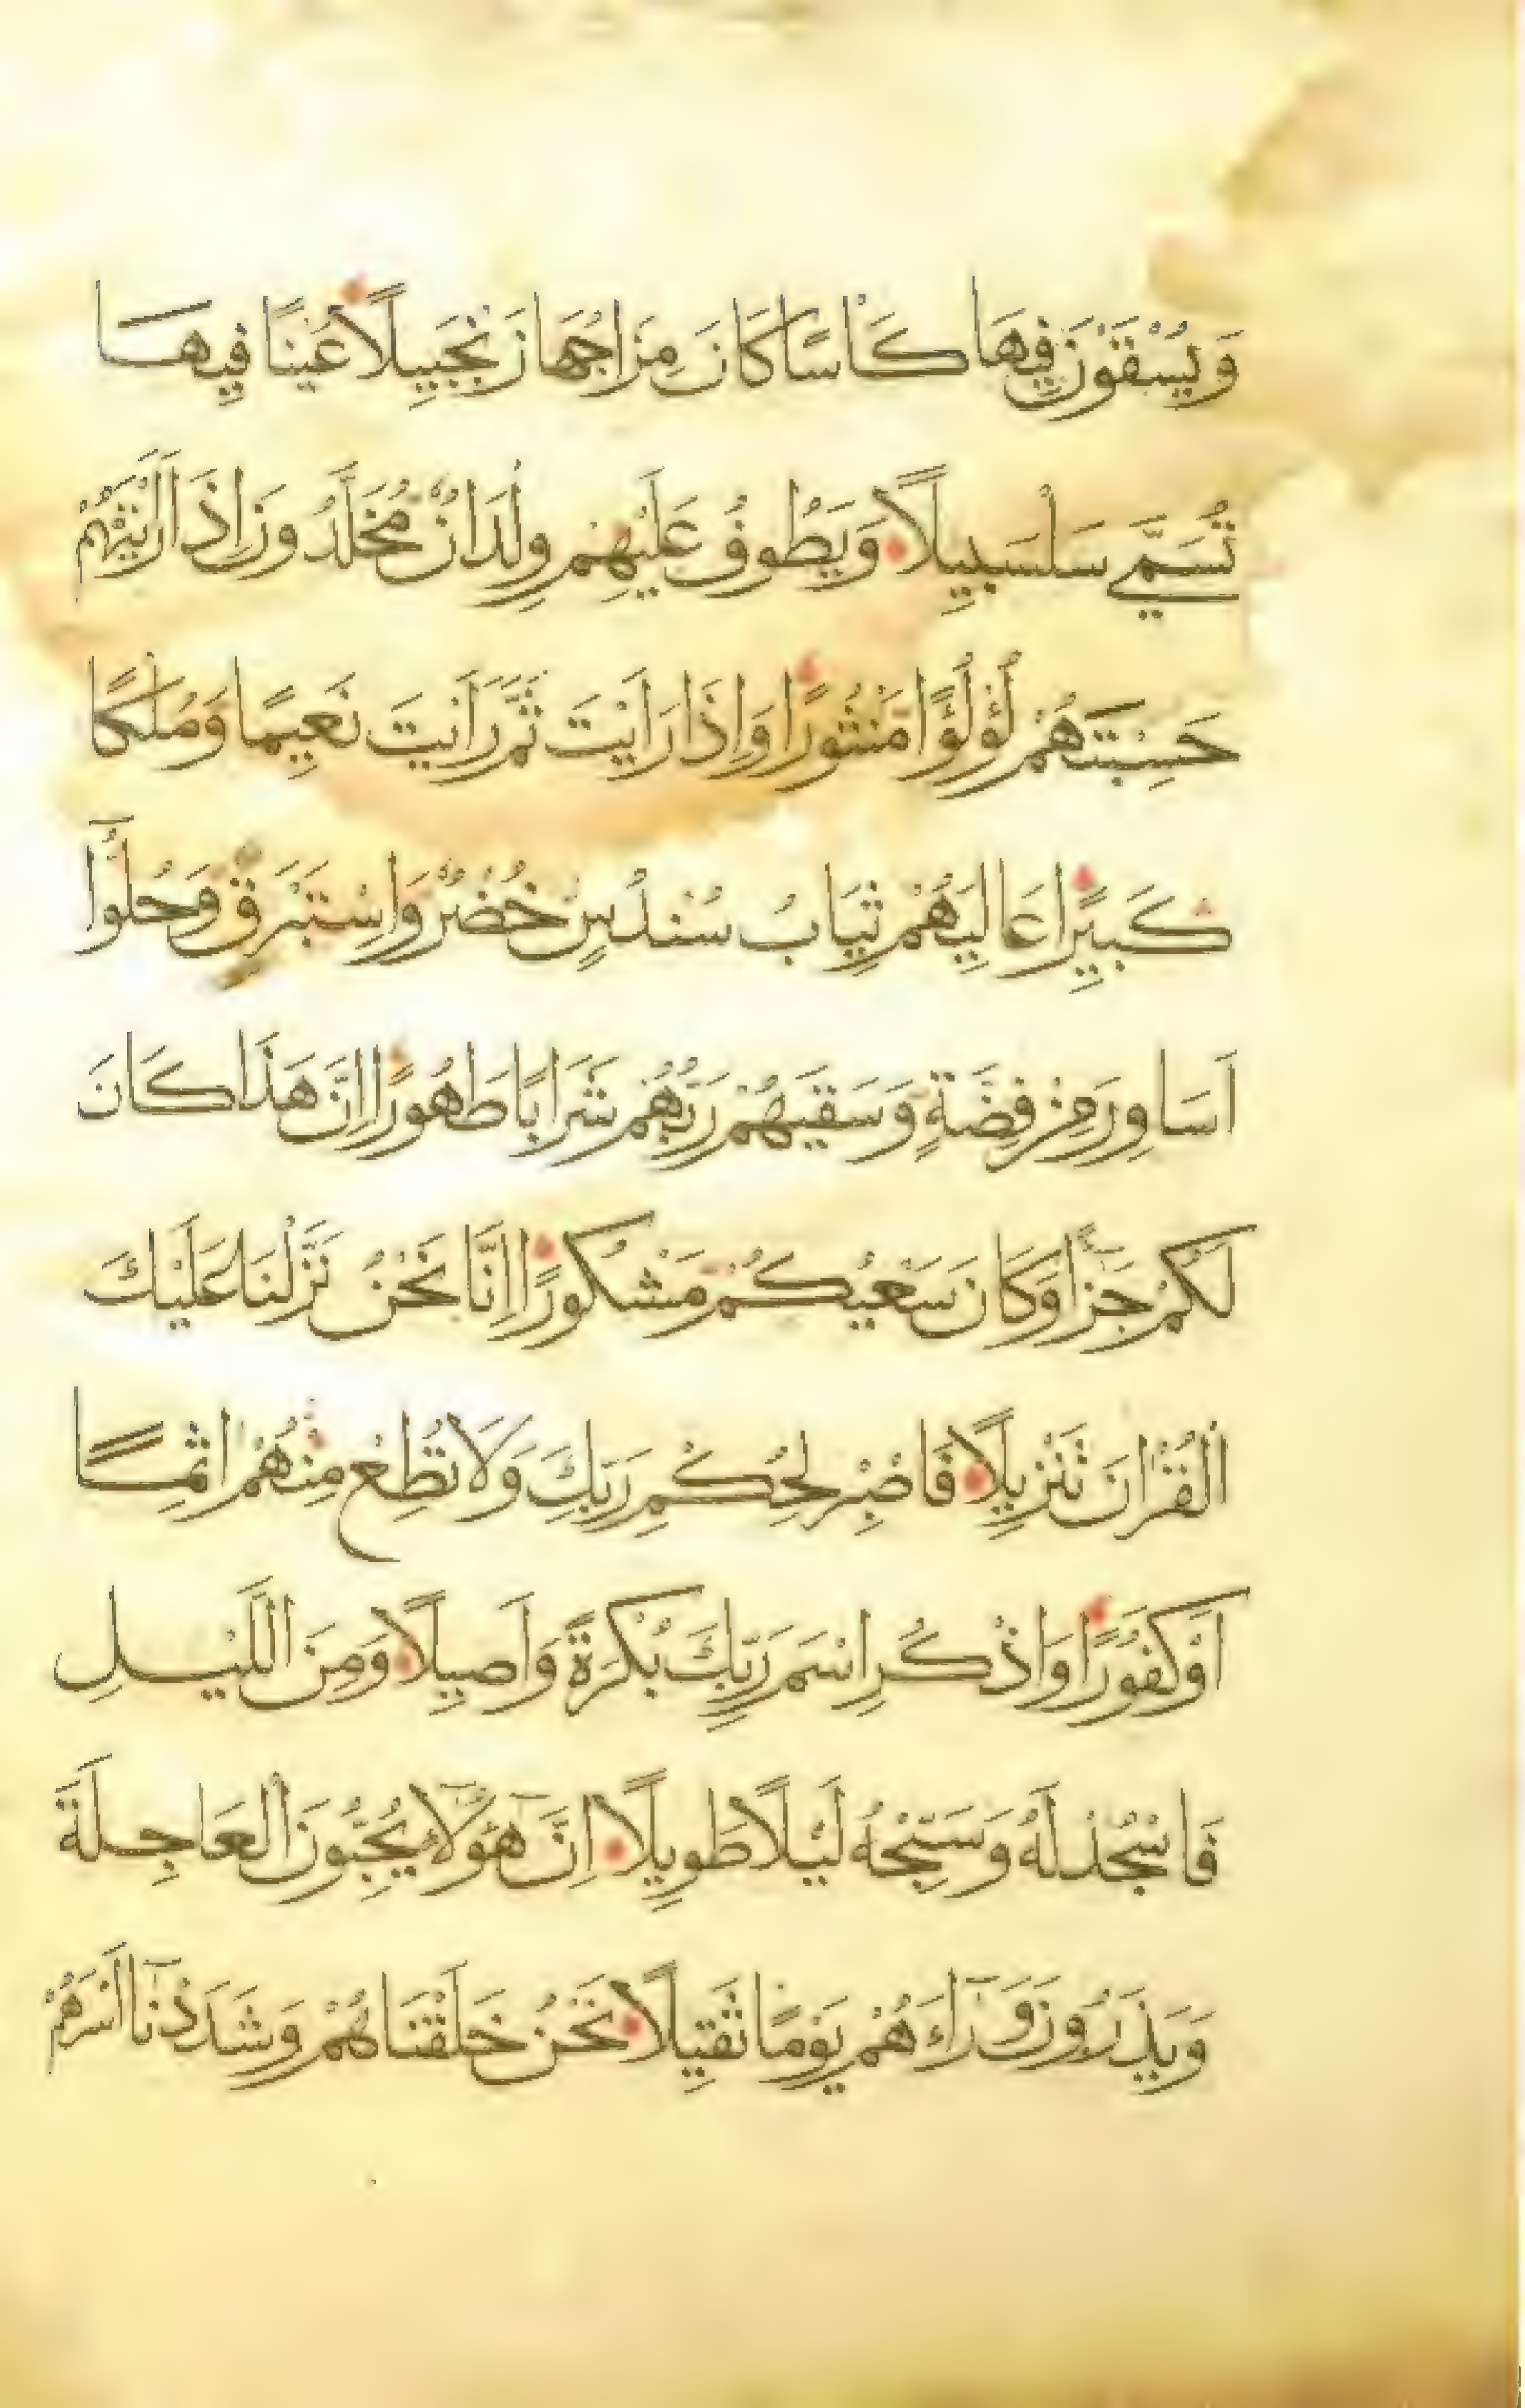 وَيُسْقَوْنَ فِيهَا كَاْسًا كَانَ مِزَاجُهَا زَنْجَبِيلًا عَيْنًا فِيهَا
تُسَمَّي سَلْسَبِيلًا وَيَطُوفُ عَلَيْهِمْ وِلْدَانٌ مُخَلَّدُونَ اِذَا رَاَيْتَهُمْ
حَسِبْتَهُمْ لُؤْلُؤًا مَنْثُورًا وَاِذَا رَاَيْتَ ثَمَّ رَاَيْتَ نَعِيمًا وَمُلْكًا
كَبِيرًا عَالِيَهُمْ ثِيَابُ سُنْدُسٍ خُضْرٌ وَاِسْتَبْرَقٌ وَحُلُّوٓا
اَسَاوِرَ مِنْ فِضَّةٍ وَسَقَيهُمْ رَبُّهُمْ شَرَابًا طَهُورًا اِنَّ هَذَا كَانَ
لَكُمْ جَزَآءً وَكَانَ سَعْيُكُمْ مَشْكُورًا اِنَّا نَحْنُ نَزَّلْنَا عَلَيْكَ
الْقُرْاٰنَ تَنْزِيلًا فَاصْبِرْ لِحُكْمِ رَبِّكَ وَلَا تُطِعْ مِنْهُمْ اٰثِمًا
اَوْ كَفُورًا وَاذْكُرِ اسْمَ رَبِّكَ بُكْرَةً وَاَصِيلًا وَمِنَ اللَّيْلِ
فَاسْجُدْ لَهُ وَسَبِّحْهُ لَيْلًا طَوِيلًا اِنَّ هٓؤُلَآءِ يُحِبُّونَ الْعَاجِلَةَ
وَيَذَرُونَ وَرَآءَهُمْ يَوْمًا ثَقِيلًا نَحْنُ خَلَقْنَاهُمْ وَشَدَدْنَآ اَسْرَهُمْ